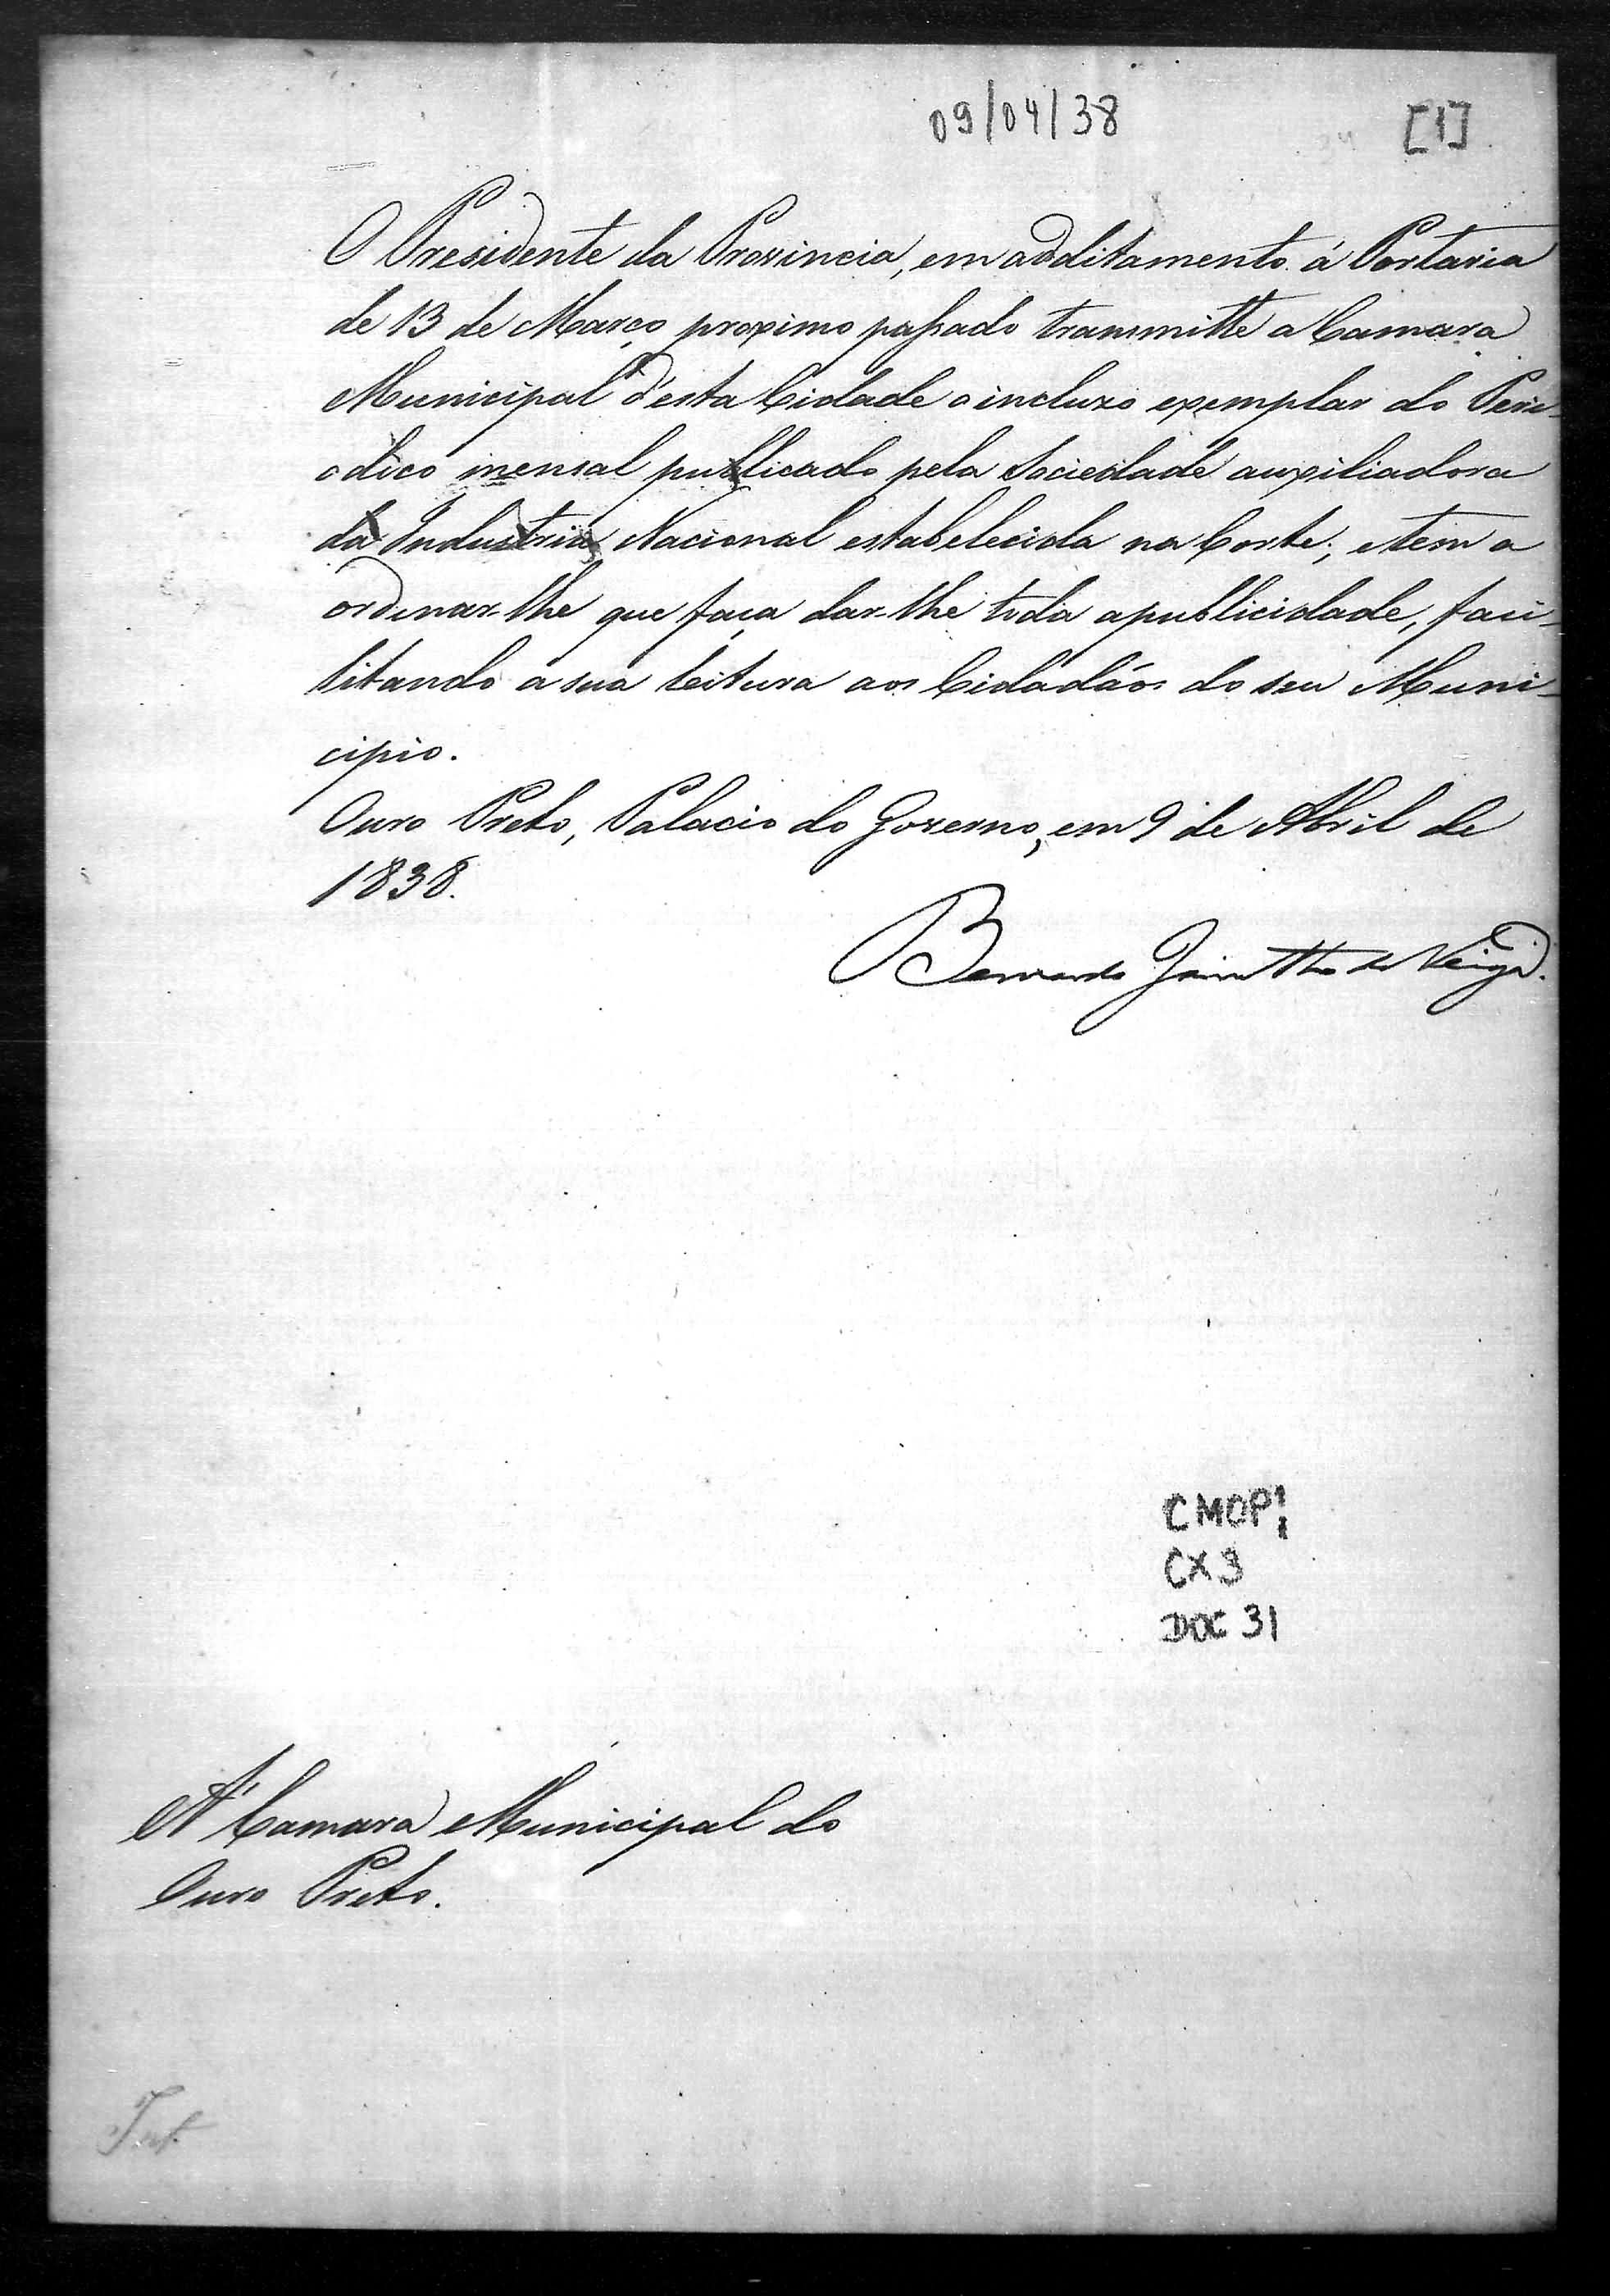 09/04/38
[1]
O Presidente da Provincia, em additamento á Portaria
de 13 de Março proximo passado transmitte a Camara
Municipal d'esta Cidade o incluzo exemplar do Peri-
odico mensal publicado pela Sociedade auxiliadora
da Industria Nacional estabelecida na Corte; e tem a
ordenar-lhe que faça dar-lhe toda a publicidade, faci-
litando a sua leitura aos Cidadãos do seu Muni-
cipio.
Ouro Preto, Palacio do Governo, em 9 de Abril de
1838.
Bernardo Jacintho da Veiga.
CMOP
CX 3
DOC 31
A' Camara Municipal do
Ouro Preto.